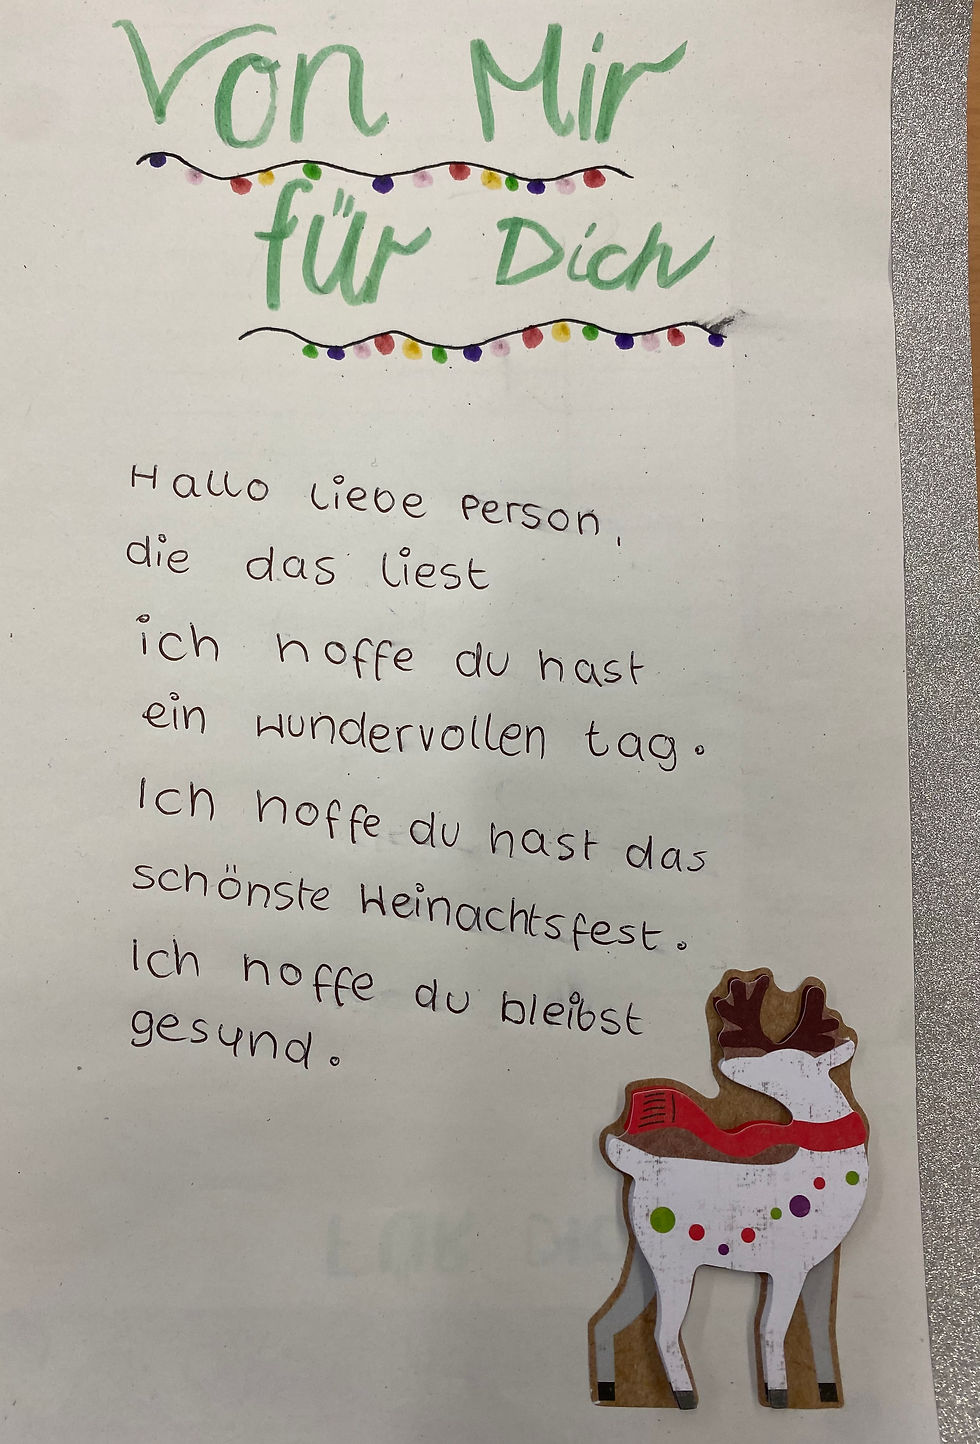 Von Mir
für Dich
Hallo liebe Person,
die das liest
ich hoffe du hast
ein wundervollen tag.
Ich hoffe du hast das
schönste Weinachtsfest.
Ich hoffe du bleibst
gesund.